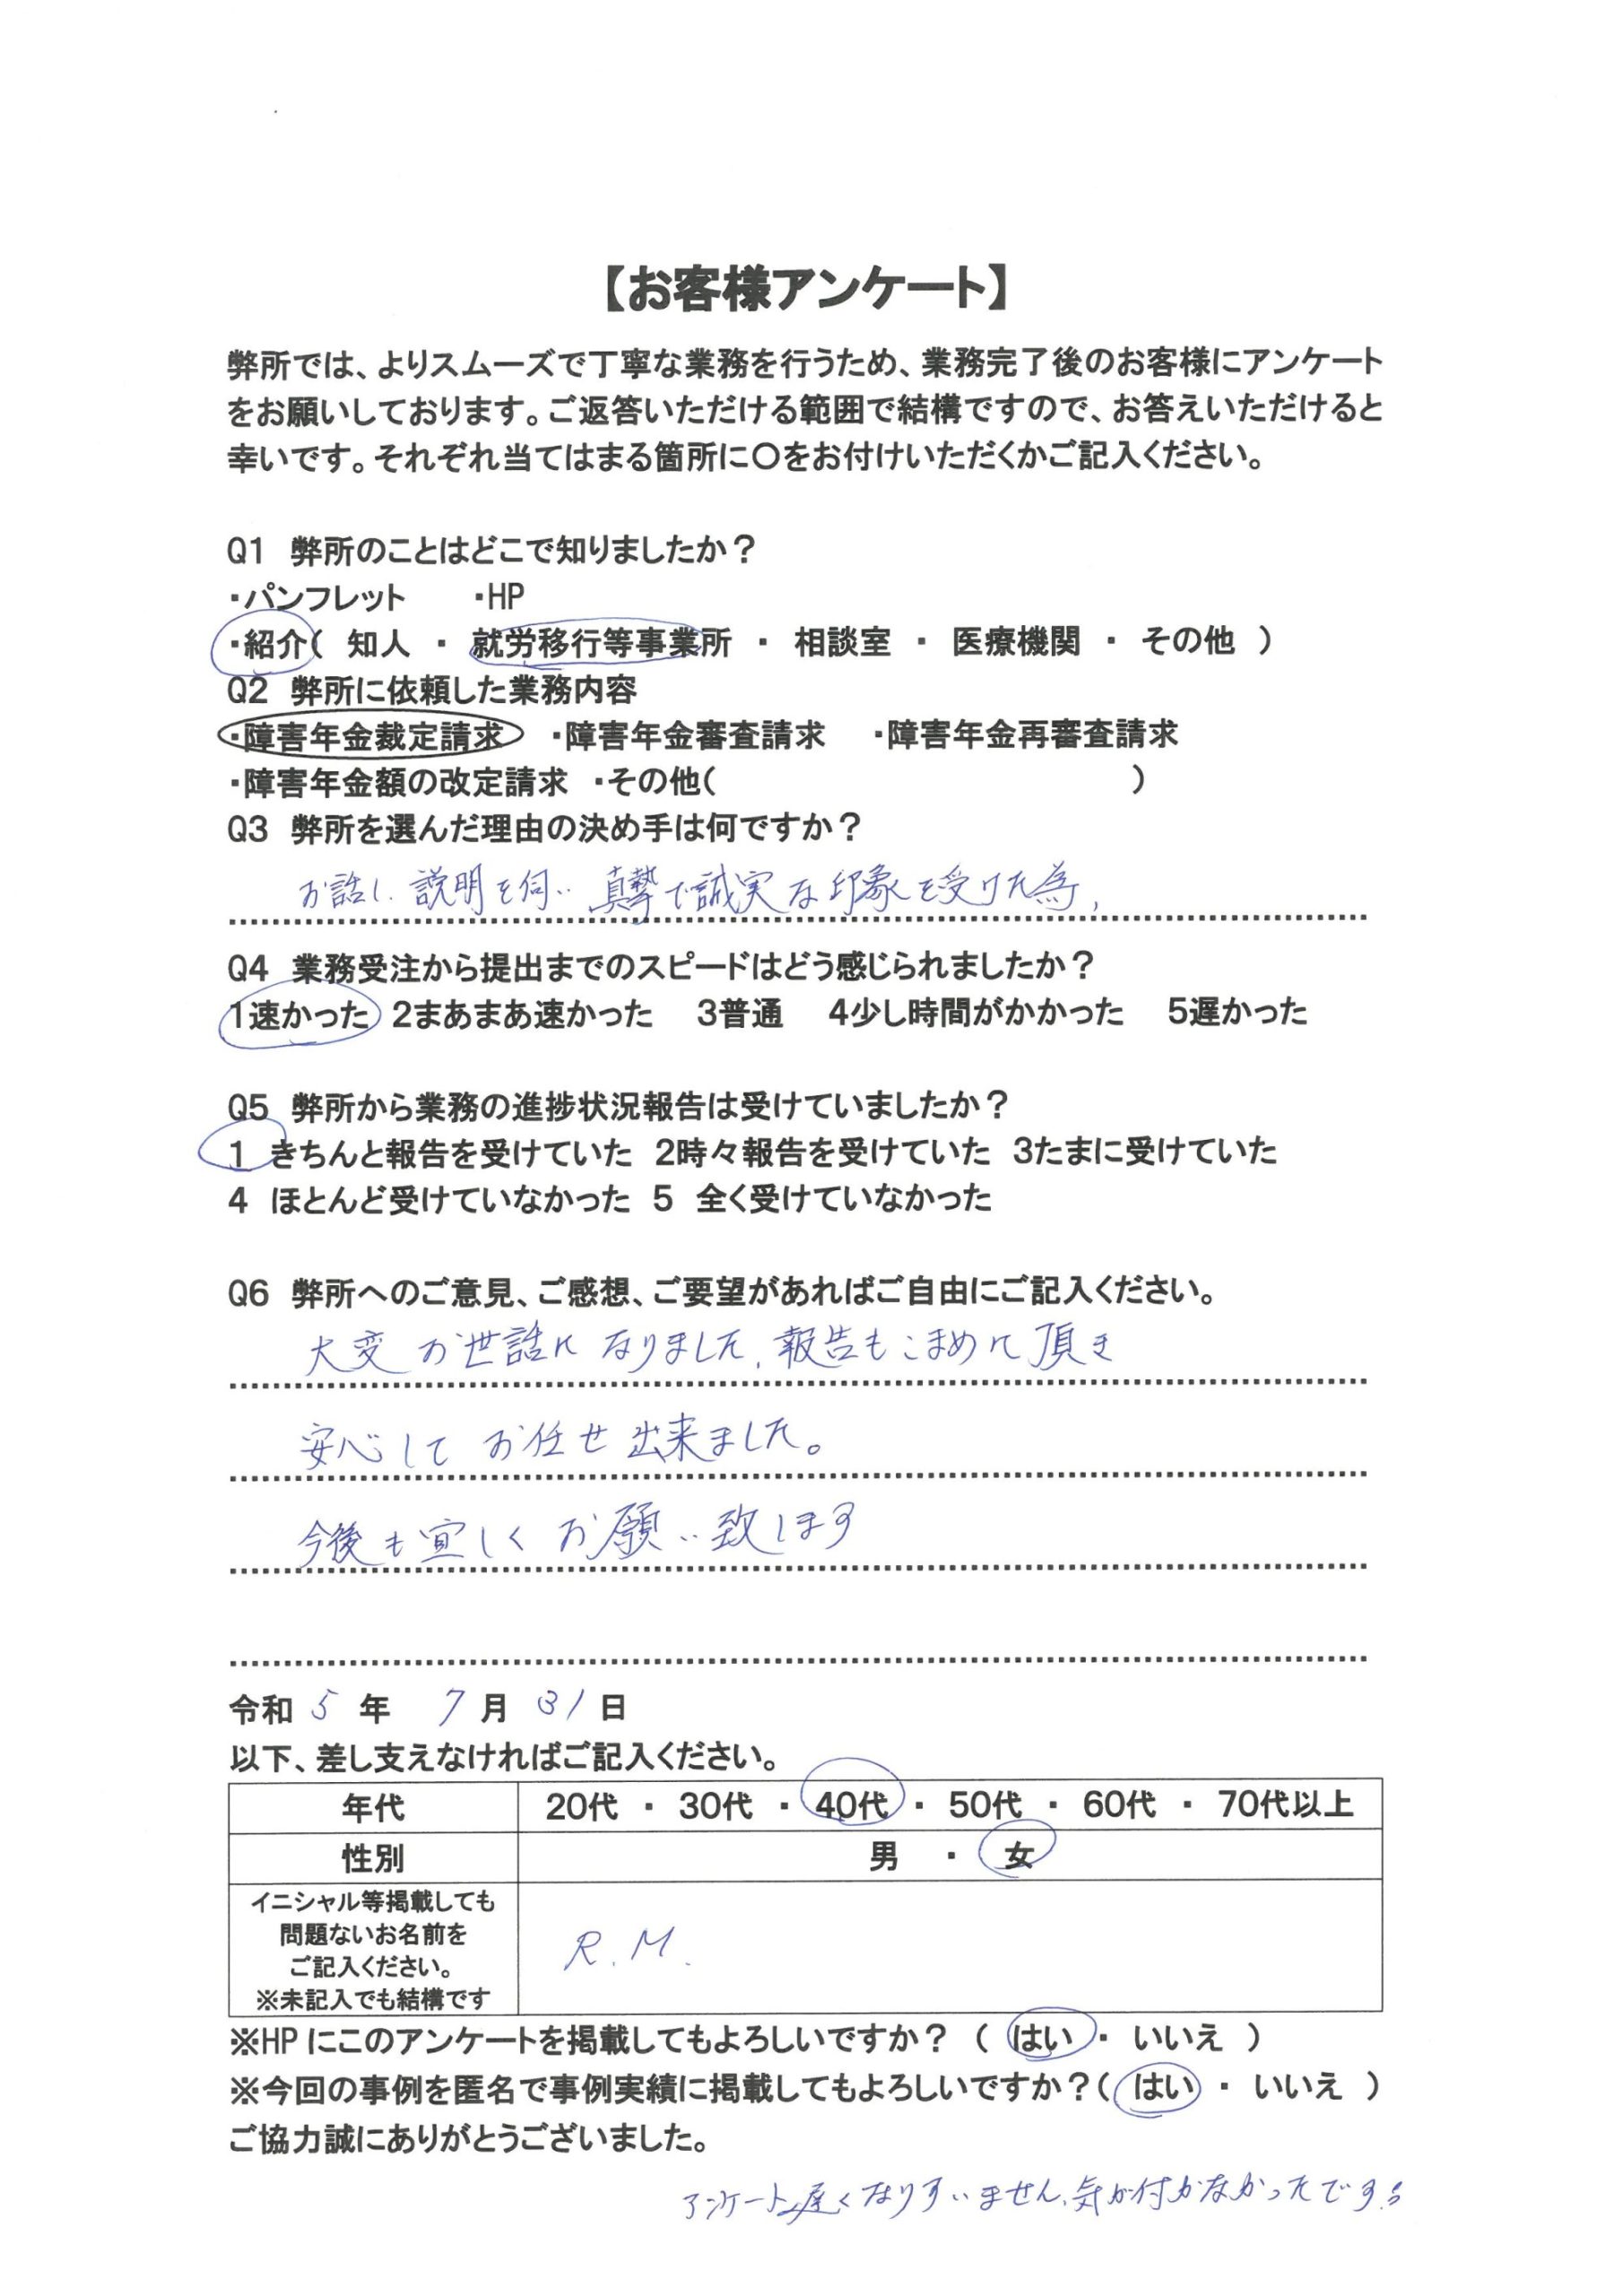 【お客様アンケート】
弊所では、よりスムーズで丁寧な業務を行うため、業務完了後のお客様にアンケート
をお願いしております。ご返答いただける範囲で結構ですので、お答えいただけると
幸いです。それぞれ当てはまる箇所に〇をお付けいただくかご記入ください。
Q1 弊所のことはどこで知りましたか？
・パンフレット ・HP
・紹介( 知人 ・ 就労移行等事業所 ・ 相談室 ・ 医療機関 ・ その他 )
Q2 弊所に依頼した業務内容
・障害年金裁定請求 ・障害年金審査請求 ・障害年金再審査請求
・障害年金額の改定請求 ・その他( )
Q3 弊所を選んだ理由の決め手は何ですか？
お話し、説明を伺い真摯で誠実な印象を受けた為、
Q4 業務受注から提出までのスピードはどう感じられましたか？
1速かった 2まあまあ速かった 3普通 4少し時間がかかった 5遅かった
Q5 弊所から業務の進捗状況報告は受けていましたか？
1 きちんと報告を受けていた 2時々報告を受けていた 3たまに受けていた
4 ほとんど受けていなかった 5 全く受けていなかった
Q6 弊所へのご意見、ご感想、ご要望があればご自由にご記入ください。
大変お世話になりました、報告もこまめに頂き
安心してお任せ出来ました。
今後も宜しくお願い致します
令和 5 年 7 月 31 日
以下、差し支えなければご記入ください。
年代 20代 ・ 30代 ・ 40代 ・ 50代 ・ 60代 ・ 70代以上
性別 男 ・ 女
イニシャル等掲載しても
問題ないお名前を
ご記入ください。
※未記入でも結構です
R. M.
※HPにこのアンケートを掲載してもよろしいですか？ ( はい ・ いいえ )
※今回の事例を匿名で事例実績に掲載してもよろしいですか？( はい ・ いいえ )
ご協力誠にありがとうございました。
アンケート遅くなりすいません、気が付かなかったです。